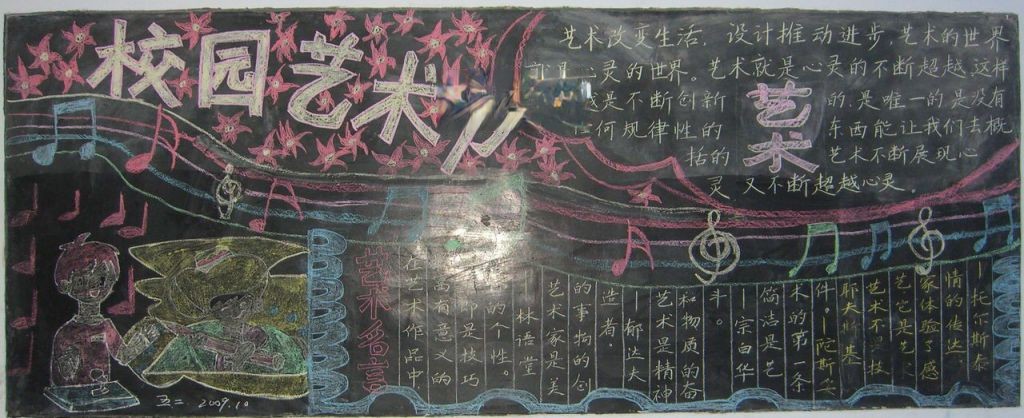 校园艺术
艺术改变生活，设计推动进步，艺术的世界
心灵的世界。艺术就是心灵的不断超越，这样
是不断创新
的，是唯一的是没有
何规律性的
东西能让我们去概
括的
艺术不断展现心
灵 又不断超越心灵。
艺术
艺术名言
在艺术作品中
富有意义的
即是技巧
的个性。
—林语堂
艺术家是美
的事物的创
造者。
—郁达夫
艺术是精神
和物质的奋
斗。
—宗白华
简洁是艺
术的第一条
件。—陀斯妥
耶夫斯基
艺术不是技
艺它是艺
家体验了感
情的传达
—托尔斯泰
五二 2009.10